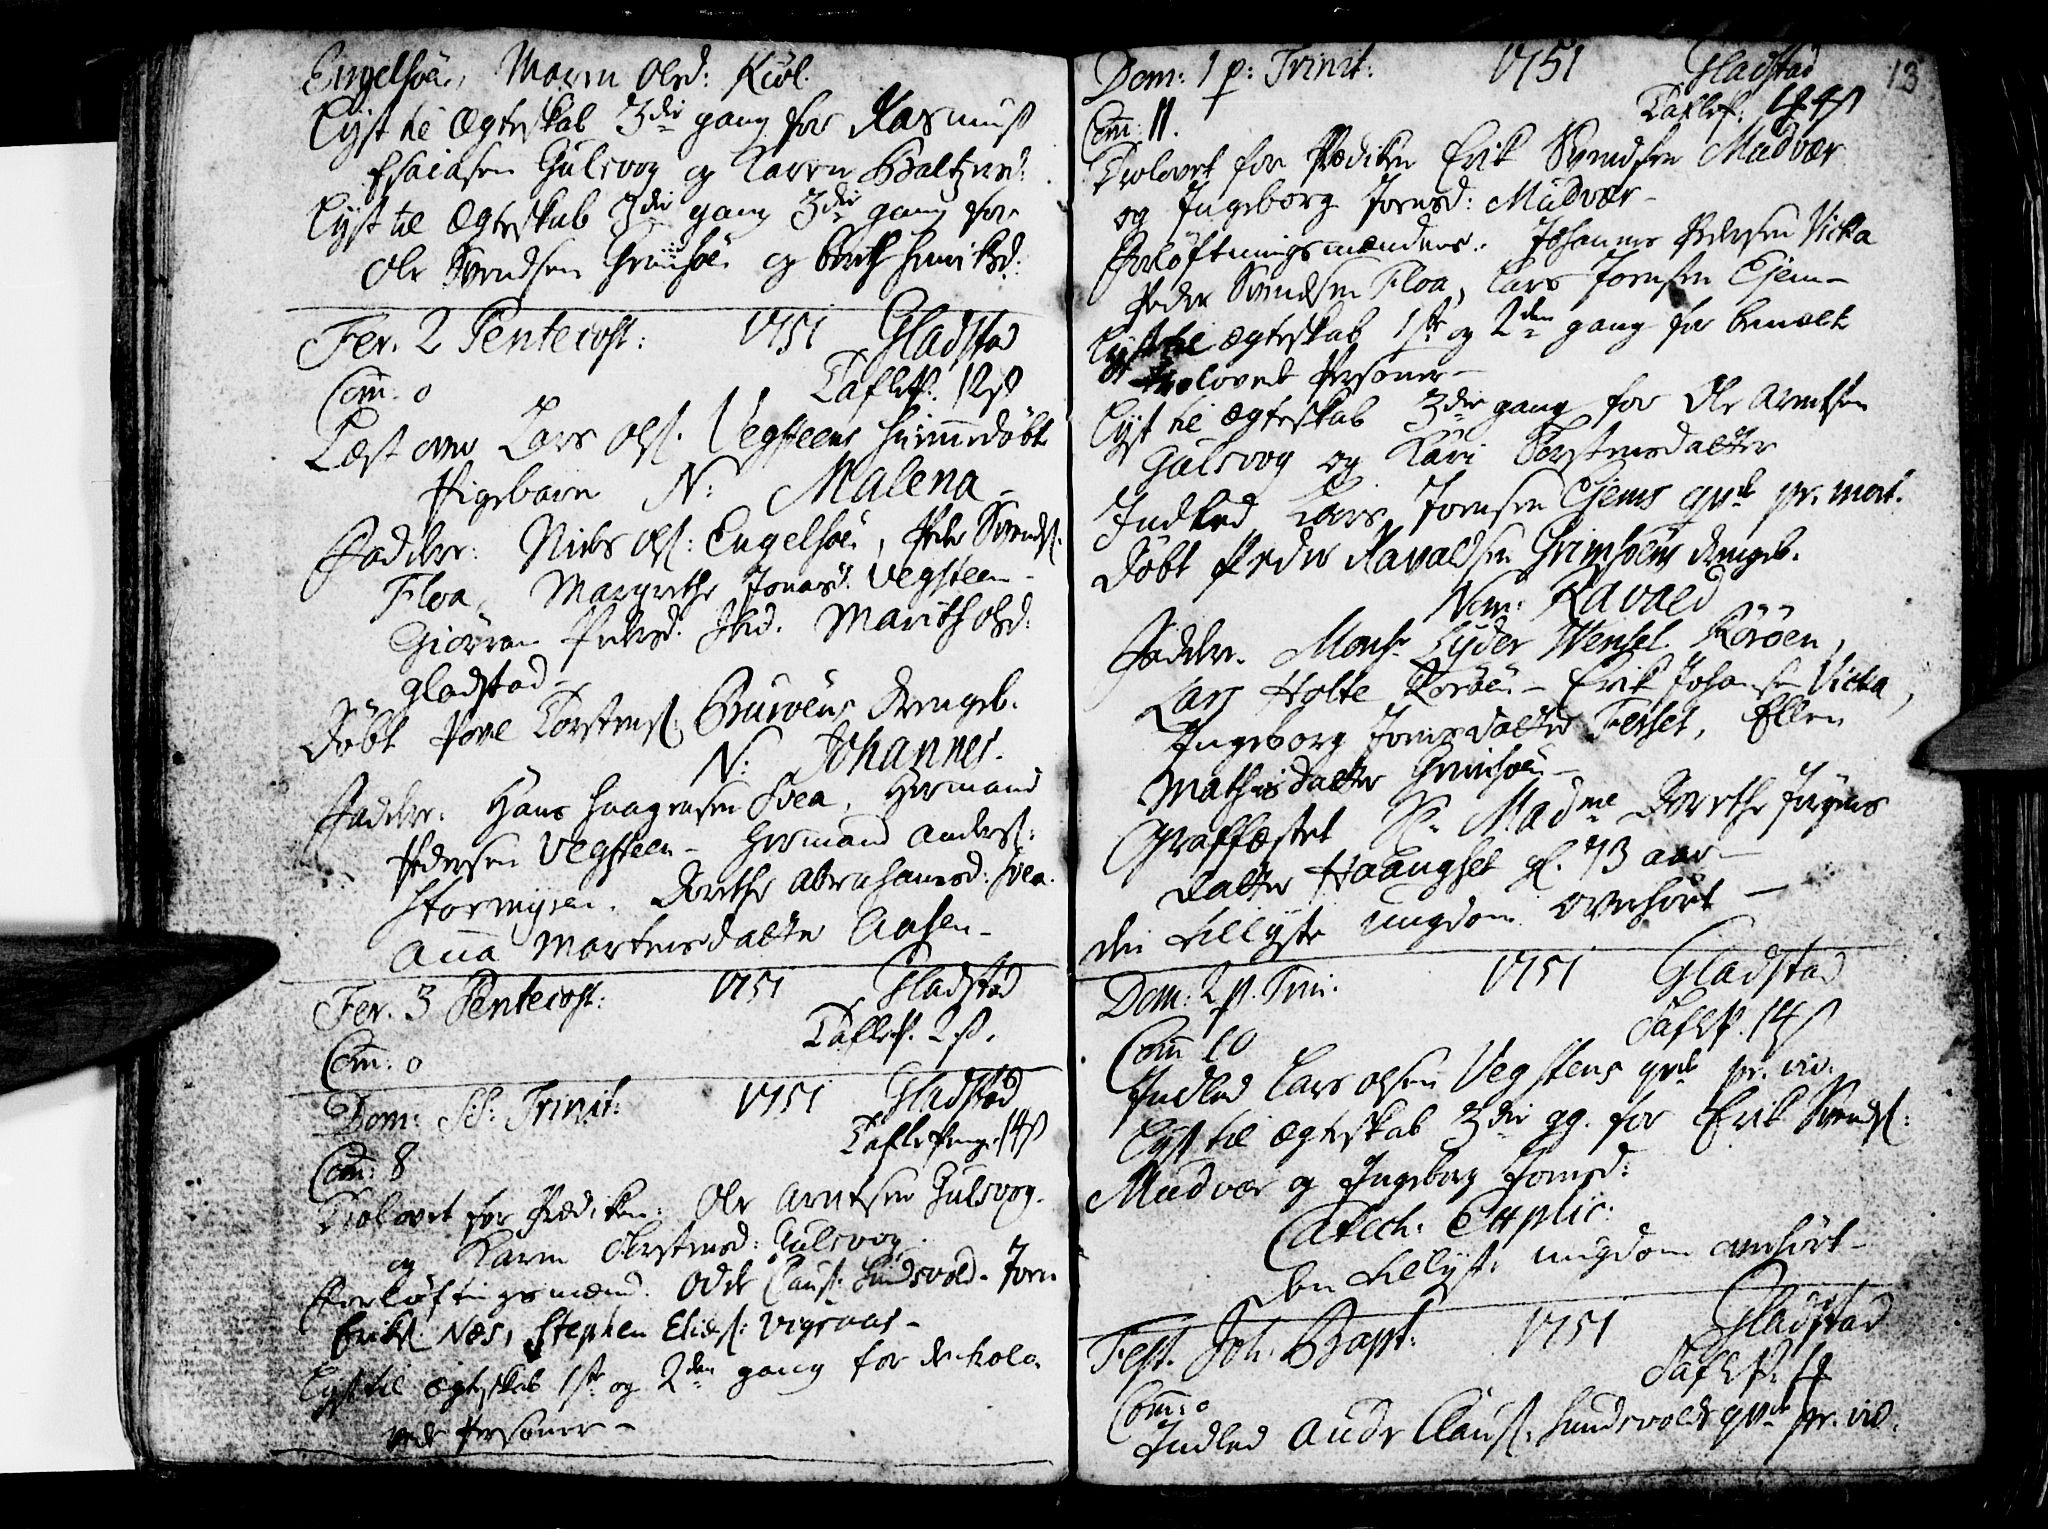 Engelsøe, Maren Olsd: Kiøl.
Lyst til Ægteskab 3die gang for Rasmus
Esaiasen Gulsvog og Karen Baltzersd:
Lyst til Ægteskab 3die gang 3die gang for
Ole Svendsen Grimsøe og Berith Henriksd:
Fer. 2 Pentecost: 1751 Gladstad
Com: 0
Taflep. 12 s
Læst over Lars Ols. Vegsteens hiemmedøbt
Pigebarn N: Malena
Faddere: Niels Ols: Engelsøe, Peder Svends.
Floa, Margrethe Jonasd. Vegsteen
Giøren Pedersd. Ibid. Marith Olsd:
Gladstad
Døbt Povel Torstens. Burøens Drengeb.
N: Johannes.
Faddere: Hans Haagensen Svea, Hermand
Pedersen Vegsteen - Hermand Anders:
Stormyren. Dorethe Abrahamsd: Svea.
Anna Mortensdatter Aasen
Fer. 3 Pentecost: 1751 Gladstad
Com: 0
Taflep. 2 s.
Dom: SS: Trinit: 1751 Gladstad
Taflepenge 14 s
Com: 8
Trolovet for Prædiken: Ole Arntsen Gulsvog
og Karen Torstensd: Gulsvog
Forløftingsmænd. Odde Claus: Sundsvold. Jørn
Eriks. Næs, Stephen Elies: Vigraas
Lyst til Ægteskab 1ste og 2den gang for de trolo
vede Personer
13
Dom: 1 p: Trinit: 1751 Gladstad
Com: 11.
Trolovet for Prædiken Erik Svendsen Mudvær
og Ingeborg Jonsd: Mudvær
Forløftningsmændene. Johannes Pedersen Vicka
Peder Svendsen Floa, Lars Jonsen Ejem
Lyst til Ægteskab 1ste og 2den gang for bemelte
trolovede Personer
Lyst til Ægteskab 3die gang for Ole Arntsen
Gulsvog og Kari Torstensdatter
Indled Lars Jonsen Ejems qvde pr. mort.
Døbt Peder Ravaldsen Grimsøens Drengeb.
Nom: Ravald
Faddere. Monsr Lyder Wensel Rørøen,
Lars Holte Rørøen - Erik Johansen Vicka,
Ingeborg Jonsdatter Ferset, Ellen
Mathisdatter Grimsøe
Graffæstet Sl. Madme Dorethe Jørgens
datter Haanghel gl. 73 aar
den tillyste ungdom overhørt
Dom: 2 p. Trin: 1751 Gladstad
Taflep. 14 s
Com 10
Indled Lars Olsen Vegstens qvde pr. vid.
Lyst til Ægteskab 3die gg. for Erik Svends:
Mudvær og Ingeborg Jonsd:
Catech: Explic:
den tillyste ungdom overhørt
Fest. Joh. Bapt: 1751 Gladstad
Com: 0
Indled Andr Claus: Sundsvolds qvde pr. vid.